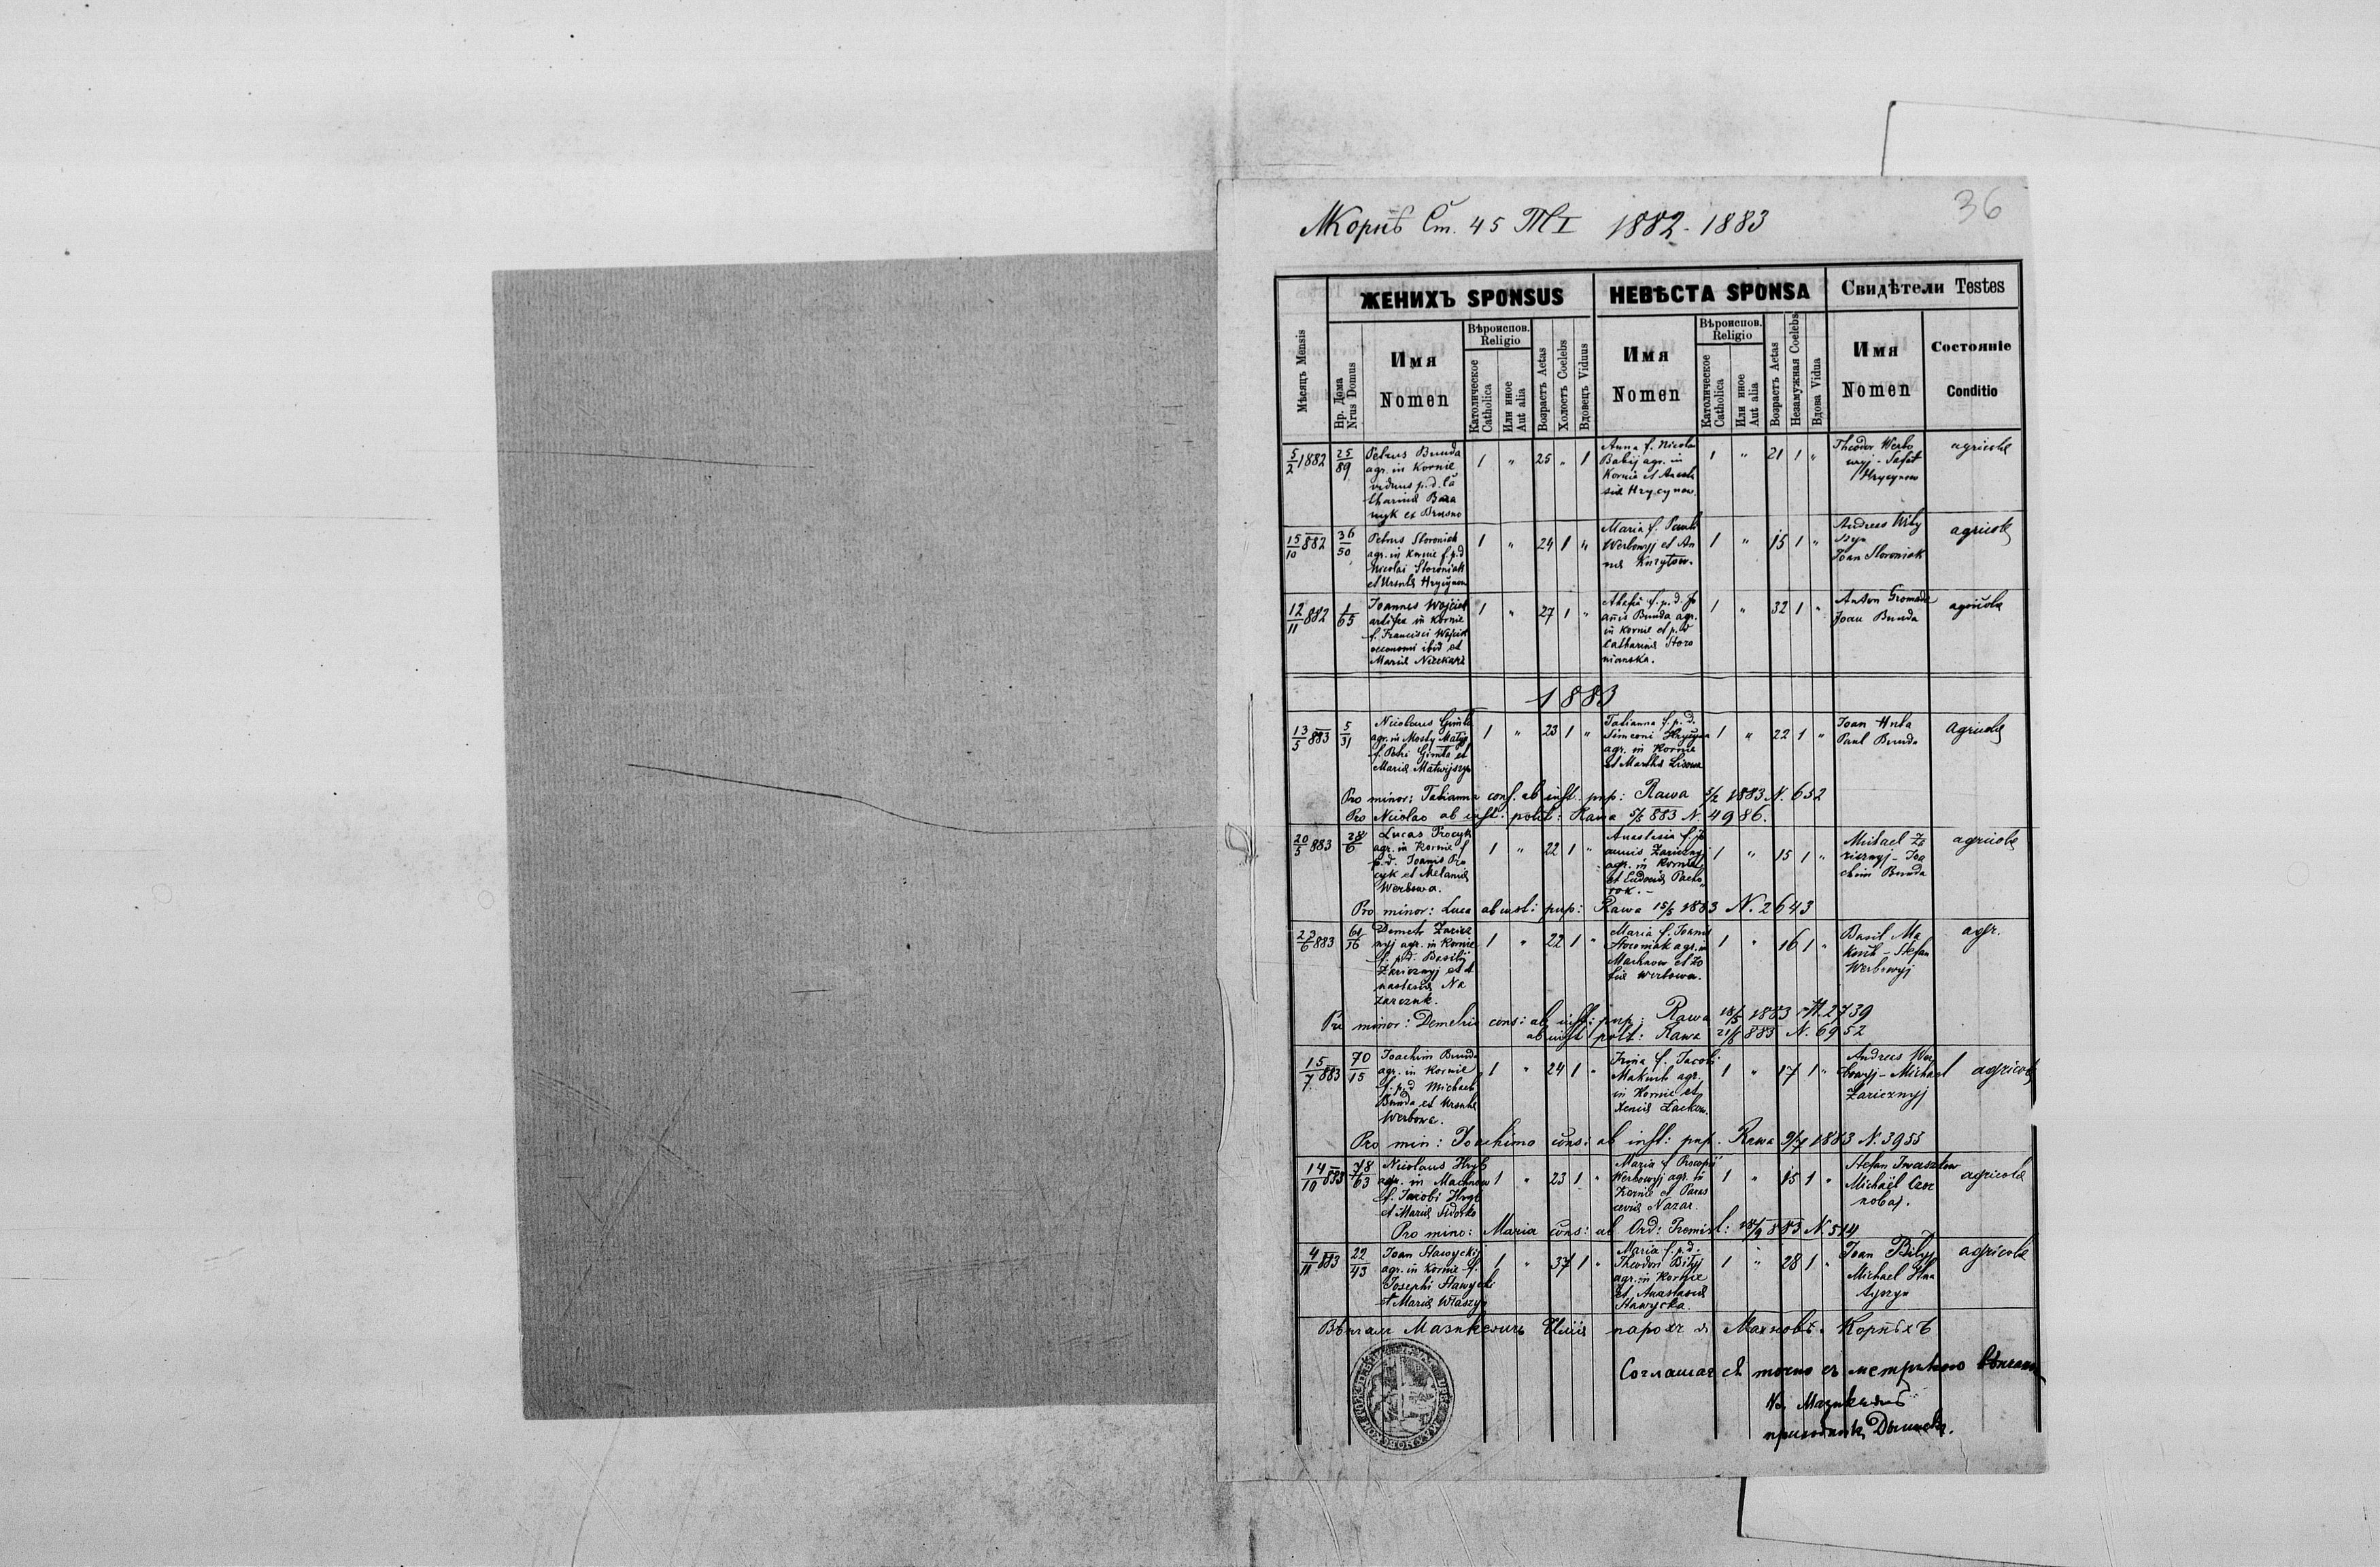 36
Корнѣ Ст. 45 Т I 1882-1883
ЖЕНИХЪ SPONSUS
НЕВѢСТА SPONSA
Свидѣтели Testes
Мѣсяцъ Mensis
Нр. Дома
Nrus Domus
Имя
Nomen
Вѣроиспов.
Religio
Католическое
Catholica
Или иное
Aut alia
Возрастъ Aetas
Холостъ Coelebs
Вдовецъ Viduus
Имя
Nomen
Вѣроиспов.
Religio
Католическое
Catholica
Или иное
Aut alia
Возрастъ Aetas
Незамужная Coelebs
Вдова Vidua
Имя
Nomen
Состояніе
Conditio
5/2 1882 25/89 Petrus Bunda
agr. in Kornie
viduus p.d. Ca
tharina
ex Brusno
1 " 25 " 1
Anna f. Nicolai
Babij agr. in
Kornie et Anasta
siæ Hrycynow.
1 " 21 1 "
Theodor Werbo
wyj - Jafat
Hrycynow
agricolæ
15/10 882 36/50 Petrus Storoniak
agr. in Kornie f. p.d
Nicolai Storoniak
et Ursulæ Hrycyna
1 " 24 1 "
Maria f. Pauli
Werbowyj et An
næ
1 " 15 1 "
Andreas
Joan Storoniak
agricolæ
12/11 882 1/65 Joannes Wojcik
artifex in Kornie
f. Francisci Wojcik
oeconomi ibid et
Mariæ
1 " 27 1 "
f. p.d. Jo
annis Bunda agr.
in Kornie et p.d
Catharinæ Storo
nianska.
1 " 32 1 "
Anton Gromada
Joan Bunda
agricolæ
1883
13/5 883 5/31 Nicolaus
agr. in Mosty
f. Petri et
Mariæ Matwijszyn
1 " 23 1 "
Tatianna f. p. d.
Simeoni
agr. in Kornie
et Marthæ
1 " 22 1 "
Joan
Paul Bunda
agricolæ
Pro minor: Tatianna cons. ab inst. pup: Rawa 1883 N. 652
Pro Nicolao ab inst. polit: Rawa 5/5 883 N. 4986.
20/5 883 28/6 Lucas Procyk
agr. in Kornie f
p.d. Joanis Pro
cyk et Melaniæ
Werbowa.
1 " 22 1 "
Anastasia f. Jo
annis Zaricznyj
agr. in Kornie
et Eudociæ Pacho
rok. -
1 " 15 1 "
Michael Za
ricznyj - Joa
chim Bunda
agricolæ
Pro minor: Luca ab inst: pup: Rawa 15/5 1883 N. 2643
61/16 Demetr Zaricz
nyj agr. in Kornie
f. p.d. Basilij
Zaricznyj et A
nastasiæ Na
zarczuk.
1 " 22 1 "
Maria f. Joannis
Storoniak agr. in
Machnow et Zo
fiæ Werbowa.
1 " 16 1 "
Basil Ma
kuch - Stefan
Werbowyj
agr.
Pro minor: Demetrio cons: ab inst: pup: Rawa 18/5 1883 N. 2739
ab inst polit: Rawa 883 N. 6952
15/7 883 70/15 Joachim Bunda
agr. in Kornie
f. p.d Michaeli
Bunda et Ursulæ
Werbowa.
1 " 24 1 "
Irina f. Jacobi
Makuch agr.
in Kornie et
Xeniæ
1 " 17 1 "
Andreas Wer
bowyj - Michael
Zaricznyj
agricolæ
Pro min: Joachimo cons: ab inst: pup. Rawa 9/7 1883 N. 3955
14/10 883 78/63 Nicolaus Hryb
agr. in Machnow
f. Jacobi Hryb
et Mariæ Sidorko
1 " 23 1 "
Maria f Procopii
Werbowyj agr. in
Kornie et Paras
ceviæ Nazar.
1 " 15 1 "
Stefan Iwasz
Michael Czor
nobaj.
agricolæ
Pro mino: Maria cons: ab Ord: Premisl: 18/9 883 N. 514
4/11 883 22/43 Joan Stawyckij
agr. in Kornie f.
Josephi Stawycki
et Mariæ Własz
1 " 37 1 "
Maria f. p. d.
Theodori Bilyj
agr. in Kornie
et Anastasiæ
Stawycka
1 " 28 1 "
Joan Bilyj
Michael Hna
tyszyn
agricolæ
Вѣнчалъ Мазикевичъ парохъ в Махновѣ. Корнѣхъ
Соглашае ся точно съ метрикою вѣнчаній